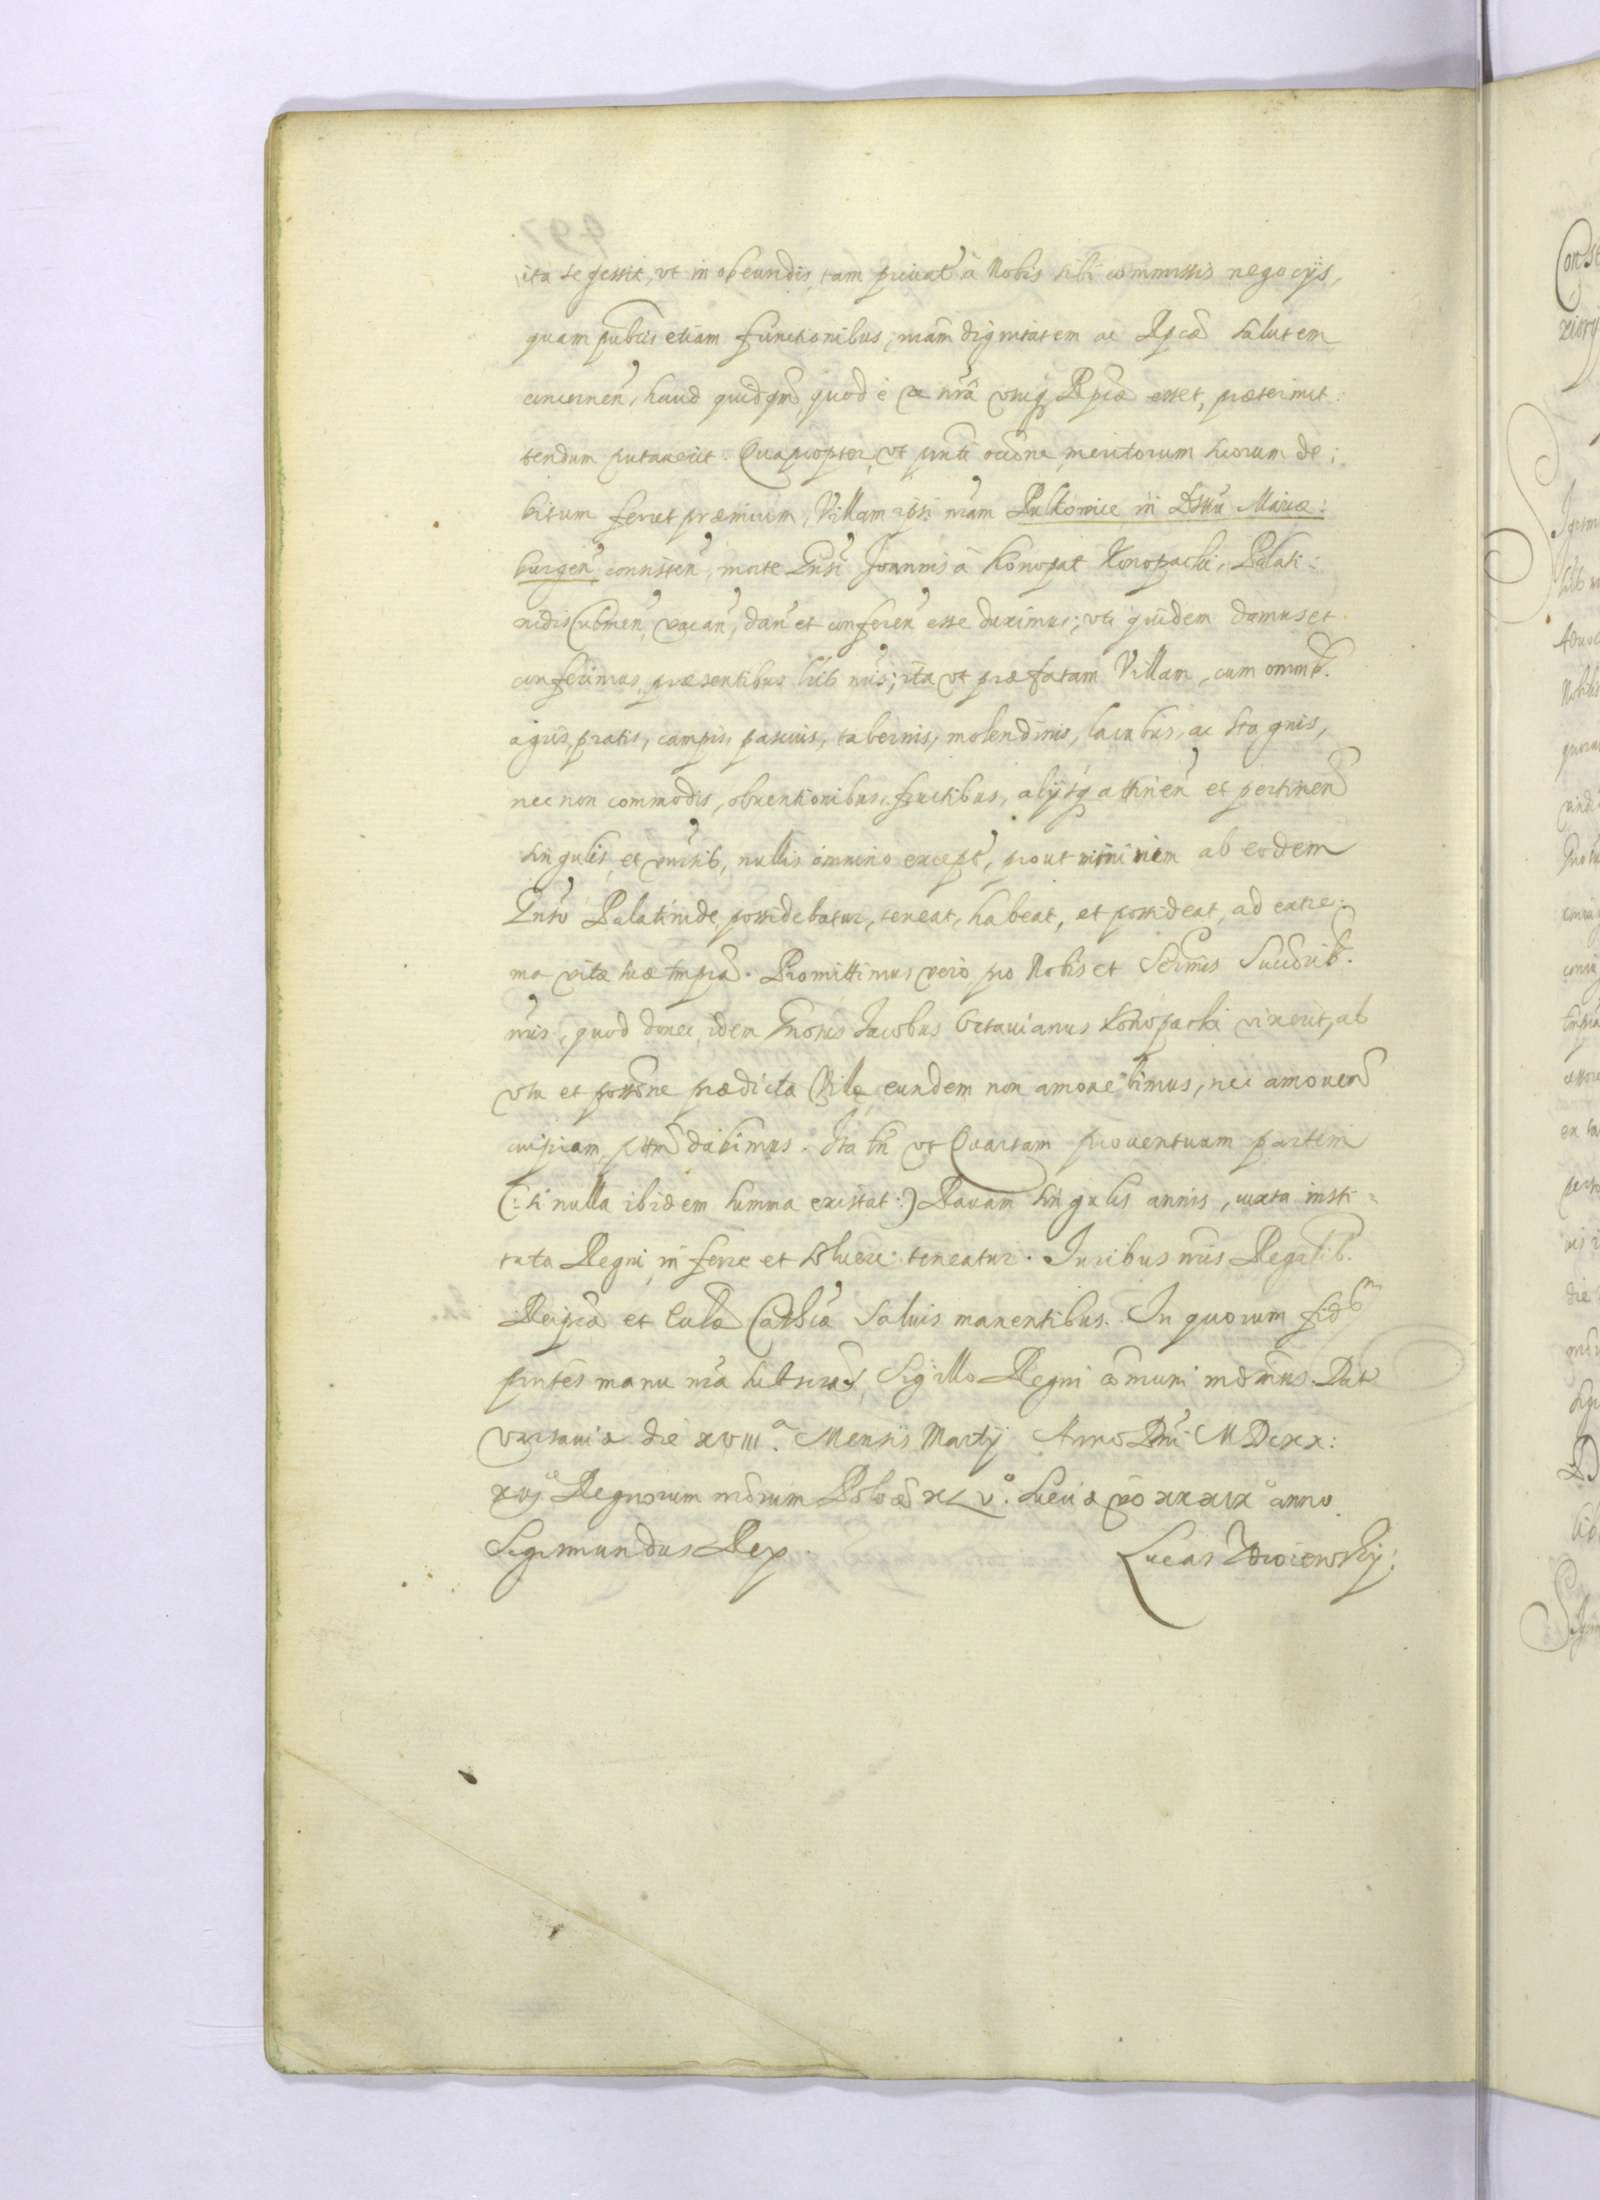 ita se gessit, vt in obeundis, tam priuat à Nobis sibi commissis negocijs,
quam publicis etiam functionibus, nram dignitatem ac Rpcae salutem
concernen, haud quidqm quod è re nrâ vnq Rpcae esset, prætermit:
tendum putauerit. Quapropter, vt pnti occōne meritorum suorum de:
bitum ferret præmium, Villam ipsi nram Pulkowice in Dstrū Mariæ:
burgen consisten, morte Gnsi Joannis à Konopat Konopacki, Palati:
nidis Culmen, vacan, dan et conferen esse duximus; vti quidem damus et
conferimus præsentibus lrīs nris; ita vt præfatam Villam, cum omnib.
agris, pratis, campis, pascuis, tabernis, molendinis, lacubus, ac stagnis,
nec non commodis, obuentionibus, fructibus, alijsq attinen et pertinen
singulis, et vniūsis, nullis omnino except, prout ab eodem
Gnso Palatinide possidebatur, teneat, habeat, et possideat, ad extre:
ma vitæ suæ tmpra. Promittimus verò pro Nobis et Sermis Succorib.
nris, quod donec idem Gnosus Jacobus Octauianus Konopacki vixerit, ab
vsu et possōne prædictæ Villæ eundem non amouebimus, nec amouen
cuipiam ptem dabimus. Ita tn vt Quartam prouentuum partem
(: si nulla ibidem summa existat :) Rauam singulis annis, iuxta insti:
tuta Regni, inferre et soluere teneatur. Iuribus nris Regalib.
Reipcæ et Ecclæ Catholcæ saluis manentibus. In quorum fid
pntes manu nra subscrad, Sigillo Regni cōmuni Dat
Varsauiæ die XVIII.a Mensis Martij Anno Dni MDCXX:
XVI. Regnorum nrorum Poloæ XLV.o Sueciæ vō XXXIXo anno.
Sigismundus Rex.
Lucas